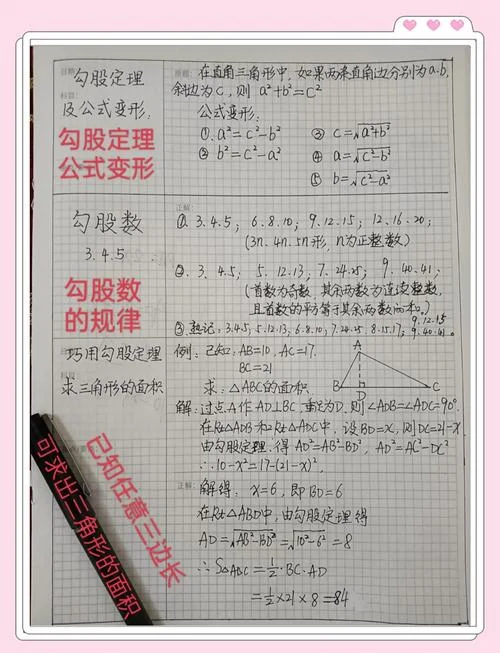 日期:
勾股定理
科目:
及公式变形:
勾股定理
公式变形
原题:
在直角三角形中,如果两条直角边分别为a.b,
斜边为c,则 a²+b²=c²
公式变形:
①.a²=c²-b² ③ c=√a²+b²
② b²=c²-a² ④ a=√c²-b²
⑤ b=√c²-a²
勾股数
3.4.5
勾股数
的规律
正解:
①.3.4.5; 6.8.10; 9.12.15; 12.16.20;
(3n.4n.5n形,n为正整数)
②.3.4.5; 5.12.13; 7.24.25; 9.40.41;
(首数为奇数,其余两数为连续整数,
且首数的平方等于其余两数的和。)
9.12.15
③.熟记:3.4.5; 5.12.13; 6.8.10; 7.24.25; 8.15.17; 9.40.41.
巧用勾股定理
科目:
求三角形的面积
例:已知:AB=10, AC=17.
BC=21
求:△ABC的面积
A
B
D
C
解:过点A作AD⊥BC,垂足为D.则∠ADB=∠ADC=90°.
在Rt△ADB和Rt△ADC中,设BD=x,则DC=21-x
由勾股定理,得 AD²=AB²-BD², AD²=AC²-DC²
∴10-x²=17-(21-x)²,
正解:
解得: x=6,即BD=6
在Rt△ABD中,由勾股定理得
AD=√AB²-BD²=√10²-6²=8
∴S△ABC=1/2·BC·AD
=1/2×21×8=84
已知任意三边长
可求出三角形的面积